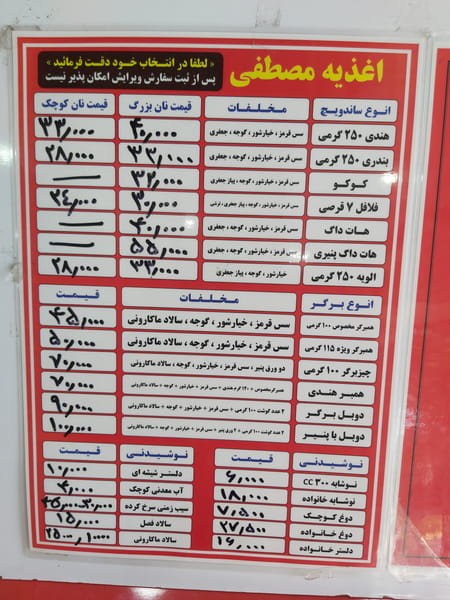 اغذیه مصطفی
« لطفا در انتخاب خود دقت فرمائید »
پس از ثبت سفارش ویرایش امکان پذیر نیست
انواع ساندویچ مخلفات قیمت نان بزرگ قیمت نان کوچک
هندی ۲۵۰ گرمی سس قرمز ، خیارشور ، گوجه ، جعفری ۴۰,۰۰۰ ۳۳,۰۰۰
بندری ۲۵۰ گرمی سس قرمز ، خیارشور ، گوجه ، جعفری ۳۳,۱۰۰ ۲۸,۰۰۰
کوکو سس قرمز ، خیارشور ، گوجه ، پیاز جعفری ۳۲,۰۰۰ —
فلافل ۷ قرصی سس قرمز ، خیارشور ، گوجه ، پیاز جعفری ، ترشی ۳۰,۰۰۰ ۲۴,۰۰۰
هات داگ سس قرمز ، خیارشور ، گوجه ، جعفری ۴۰,۰۰۰ —
هات داگ پنیری سس قرمز ، خیارشور ، گوجه ، جعفری ۵۵,۰۰۰ —
الویه ۲۵۰ گرمی خیارشور ، گوجه ، پیاز جعفری ۳۳,۰۰۰ ۲۸,۰۰۰
انواع برگر مخلفات قیمت
همبرگر مخصوص ۱۰۰ گرمی سس قرمز ، خیارشور ، گوجه ، سالاد ماکارونی ۴۵,۰۰۰
همبرگر ویژه ۱۱۵ گرمی سس قرمز ، خیارشور ، گوجه ، سالاد ماکارونی ۵۰,۰۰۰
چیزبرگر ۱۰۰ گرمی دو ورق پنیر ، سس قرمز ، خیارشور ، گوجه ، سالاد ماکارونی ۷۰,۰۰۰
همبر هندی همبرگر مخصوص + ۱۲۰ گرم هندی + سس قرمز + خیارشور + گوجه + سالاد ماکارونی ۷۰,۰۰۰
دوبل برگر ۲ عدد گوشت ۱۰۰ گرمی + سس قرمز + خیارشور + گوجه + سالاد ماکارونی ۹۰,۰۰۰
دوبل با پنیر ۲ عدد گوشت ۱۰۰ گرمی + ۲ ورق پنیر + سس قرمز + خیارشور + گوجه + سالاد ماکارونی ۱۰۰,۰۰۰
نوشیدنی قیمت نوشیدنی قیمت
نوشابه ۳۰۰ CC ۶,۰۰۰ دلستر شیشه ای ۱۰,۰۰۰
نوشابه خانواده ۱۸,۰۰۰ آب معدنی کوچک ۴,۰۰۰
دوغ کوچک ۷,۵۰۰ سیب زمینی سرخ کرده ۳۰,۰۰۰
دوغ خانواده ۲۷,۵۰۰ سالاد فصل ۱۵,۰۰۰
دلستر خانواده ۱۶,۰۰۰ سالاد ماکارونی